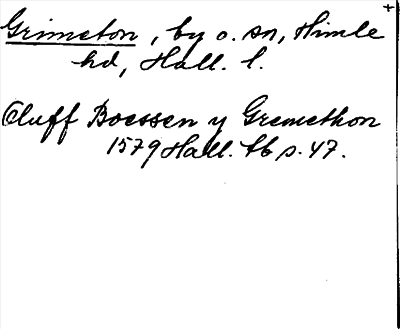 Grimeton, by o. sn, Himle
hd, Hall. l.
Oluff Boessen y Gremethon
1579 Hall. tb s. 47.